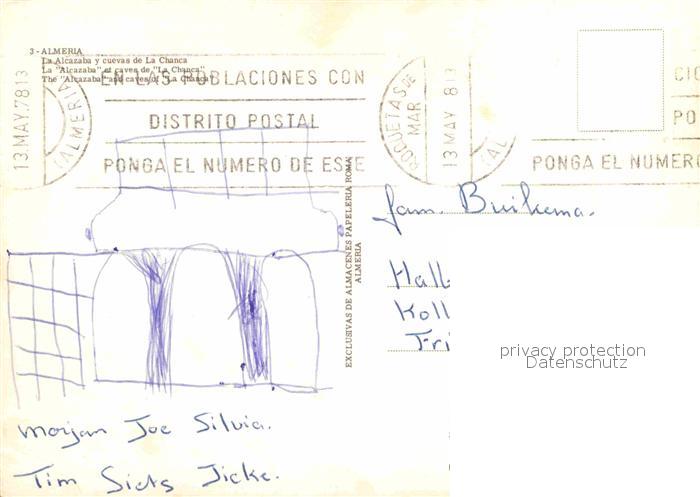 3 - ALMERIA
La Alcazaba y cuevas de La Chanca
La "Alcazaba" et caves de "La Chanca"
The "Alcazaba" and caves of "La Chanca"
13 MAY. 78 13
ALMERIA
EN LAS POBLACIONES CON
DISTRITO POSTAL
PONGA EL NUMERO DE ESTE
ROQUETAS DE MAR
13 MAY 8 13
(AL
CIO
PO
PONGA EL NUMERO
EXCLUSIVAS DE ALMACENES PAPELERIA ROMA
ALMERIA
fam. Buikema.
Hall
Koll
Fri
privacy protection
Datenschutz
Morjan Joe Silvia.
Tim Siets Jicke.